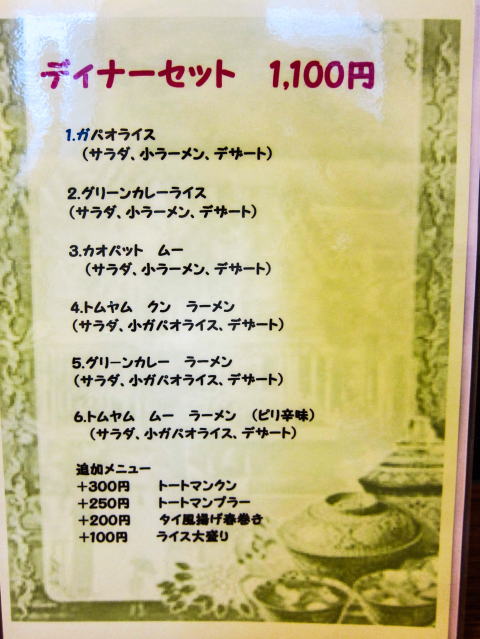 ディナーセット　1,100円
1.ガパオライス
（サラダ、小ラーメン、デザート）
2.グリーンカレーライス
（サラダ、小ラーメン、デザート）
3.カオパット　ムー
（サラダ、小ラーメン、デザート）
4.トムヤム　クン　ラーメン
（サラダ、小ガパオライス、デザート）
5.グリーンカレー　ラーメン
（サラダ、小ガパオライス、デザート）
6.トムヤム　ムー　ラーメン　（ピリ辛味）
（サラダ、小ガパオライス、デザート）
追加メニュー
＋300円　　トートマンクン
＋250円　　トートマンプラー
＋200円　　タイ風揚げ春巻き
＋100円　　ライス大盛り